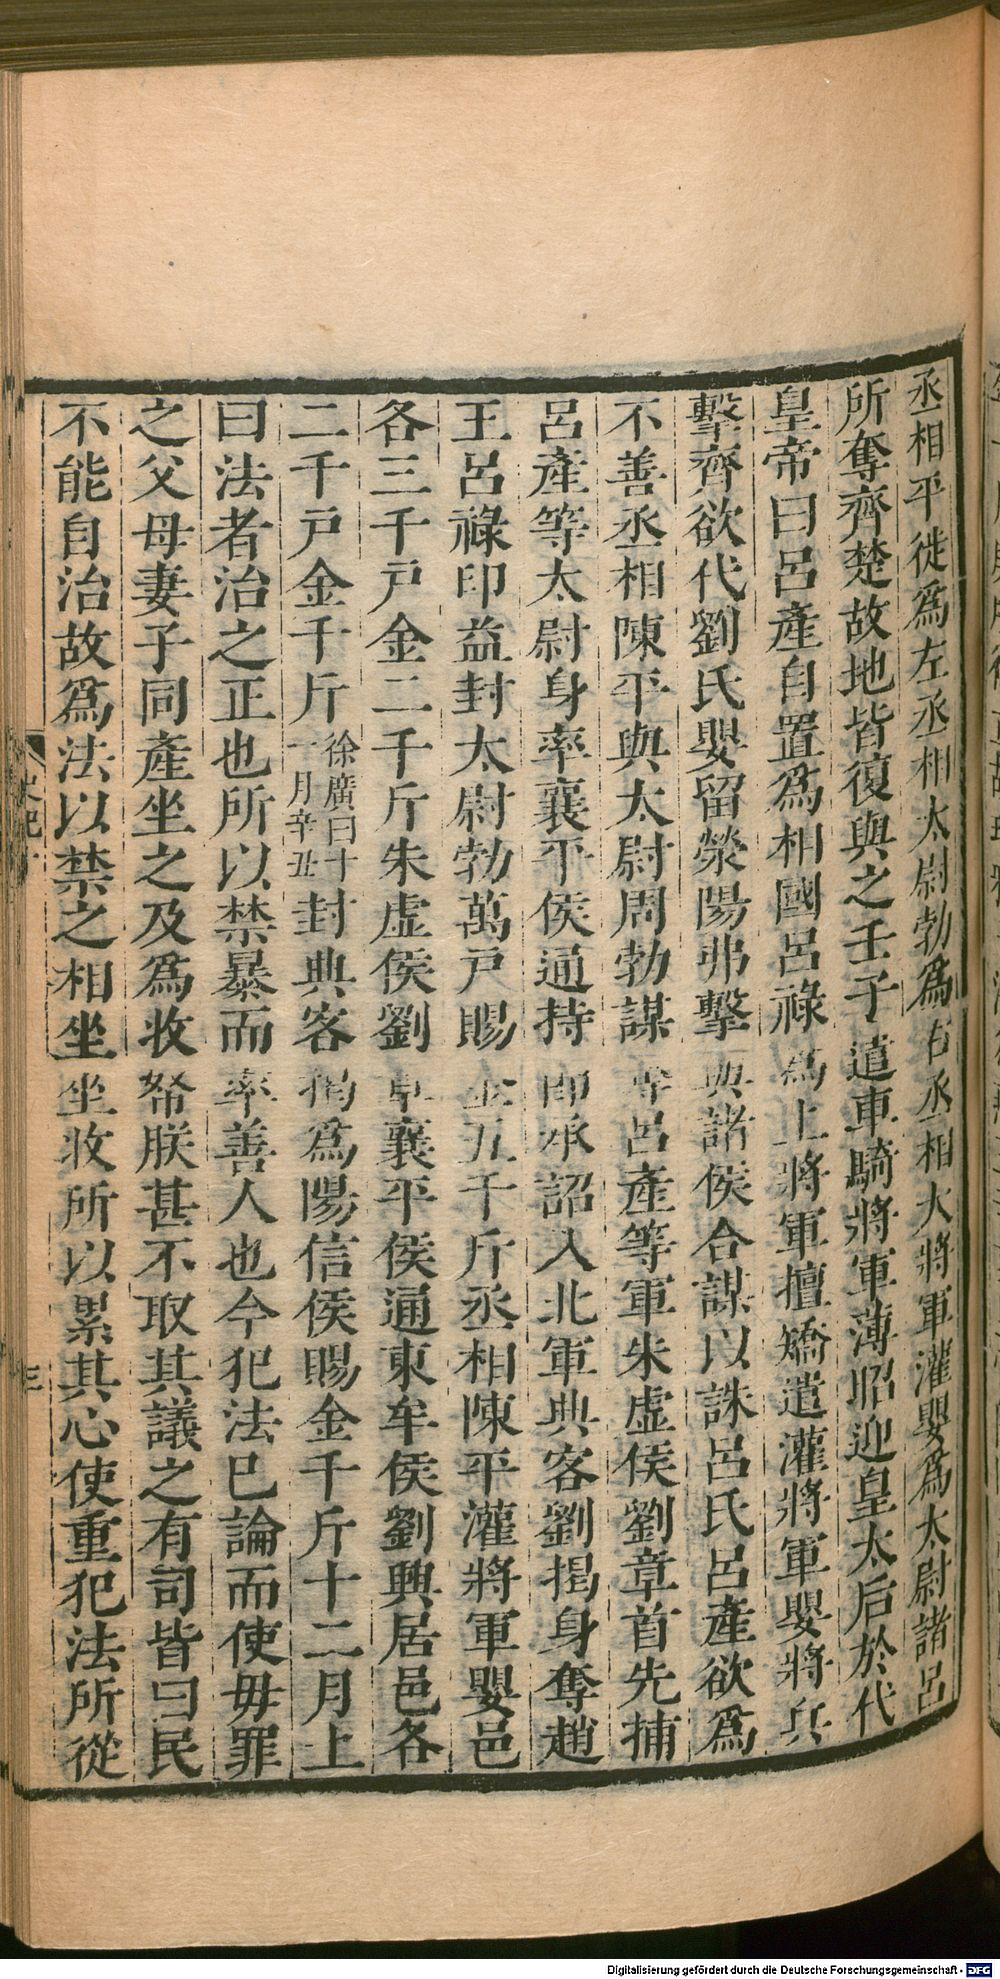 丞相平徙爲左丞相太尉勃爲右丞相大將軍灌嬰爲太尉諸呂
所奪齊楚故地皆復與之壬子遣車騎將軍薄昭迎皇太后於代
皇帝曰呂產自置爲相國呂祿爲上將軍擅矯遣灌將軍嬰將兵
擊齊欲代劉氏嬰留滎陽弗擊與諸侯合謀以誅呂氏呂產欲爲
不善丞相陳平與太尉周勃謀奪呂產等軍朱虛侯劉章首先捕
呂產等太尉身率襄平侯通持節承詔入北軍典客劉揭身奪趙
王呂祿印益封太尉勃萬戶賜金五千斤丞相陳平灌將軍嬰邑
各三千戶金二千斤朱虛侯劉章襄平侯通東牟侯劉興居邑各
二千戶金千斤徐廣曰十一月辛丑封典客揭爲陽信侯賜金千斤十二月上
曰法者治之正也所以禁暴而率善人也今犯法已論而使毋罪
之父母妻子同產坐之及爲收帑朕甚不取其議之有司皆曰民
不能自治故爲法以禁之相坐坐收所以累其心使重犯法所從
史記十
三
Digitalisierung gefördert durch die Deutsche Forschungsgemeinschaft - DFG